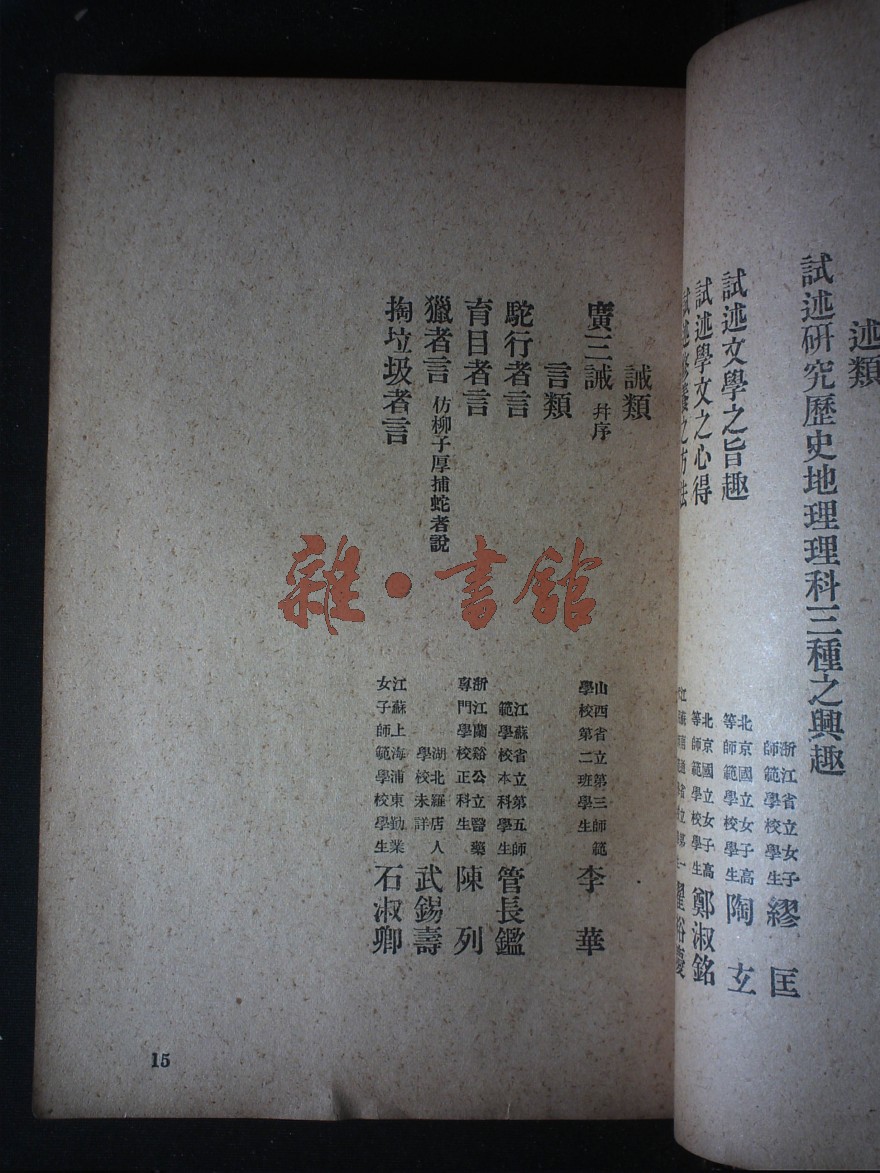 述類
試述研究歷史地理理科三種之興趣
浙江省立女子師範學校學生 繆匡
試述文學之旨趣
北京國立女子高等師範學校學生 陶玄
試述學文之心得
北京國立女子高等師範學校學生 鄭淑銘
誡類
廣三誡 幷序
山西省立第三師範學校第二班學生 李華
言類
駝行者言
江蘇省立第五師範學校本科學生 管長鑑
盲目者言
浙江蘭谿公立醫藥專門學校正科生 陳列
獵者言 仿柳子厚捕蛇者說
湖北羅店人學校未詳 武錫壽
掏垃圾者言
江蘇上海浦東勤業女子師範學校學生 石淑卿
15
雜·書館